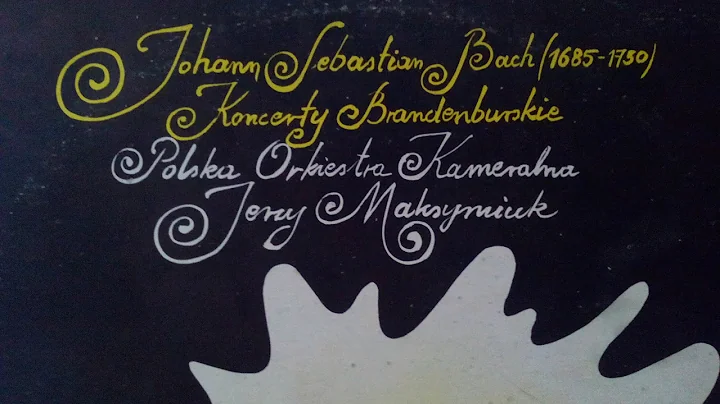 Johann Sebastian Bach (1685-1750)
Koncerty Brandenburskie
Polska Orkiestra Kameralna
Jerzy Maksymiuk